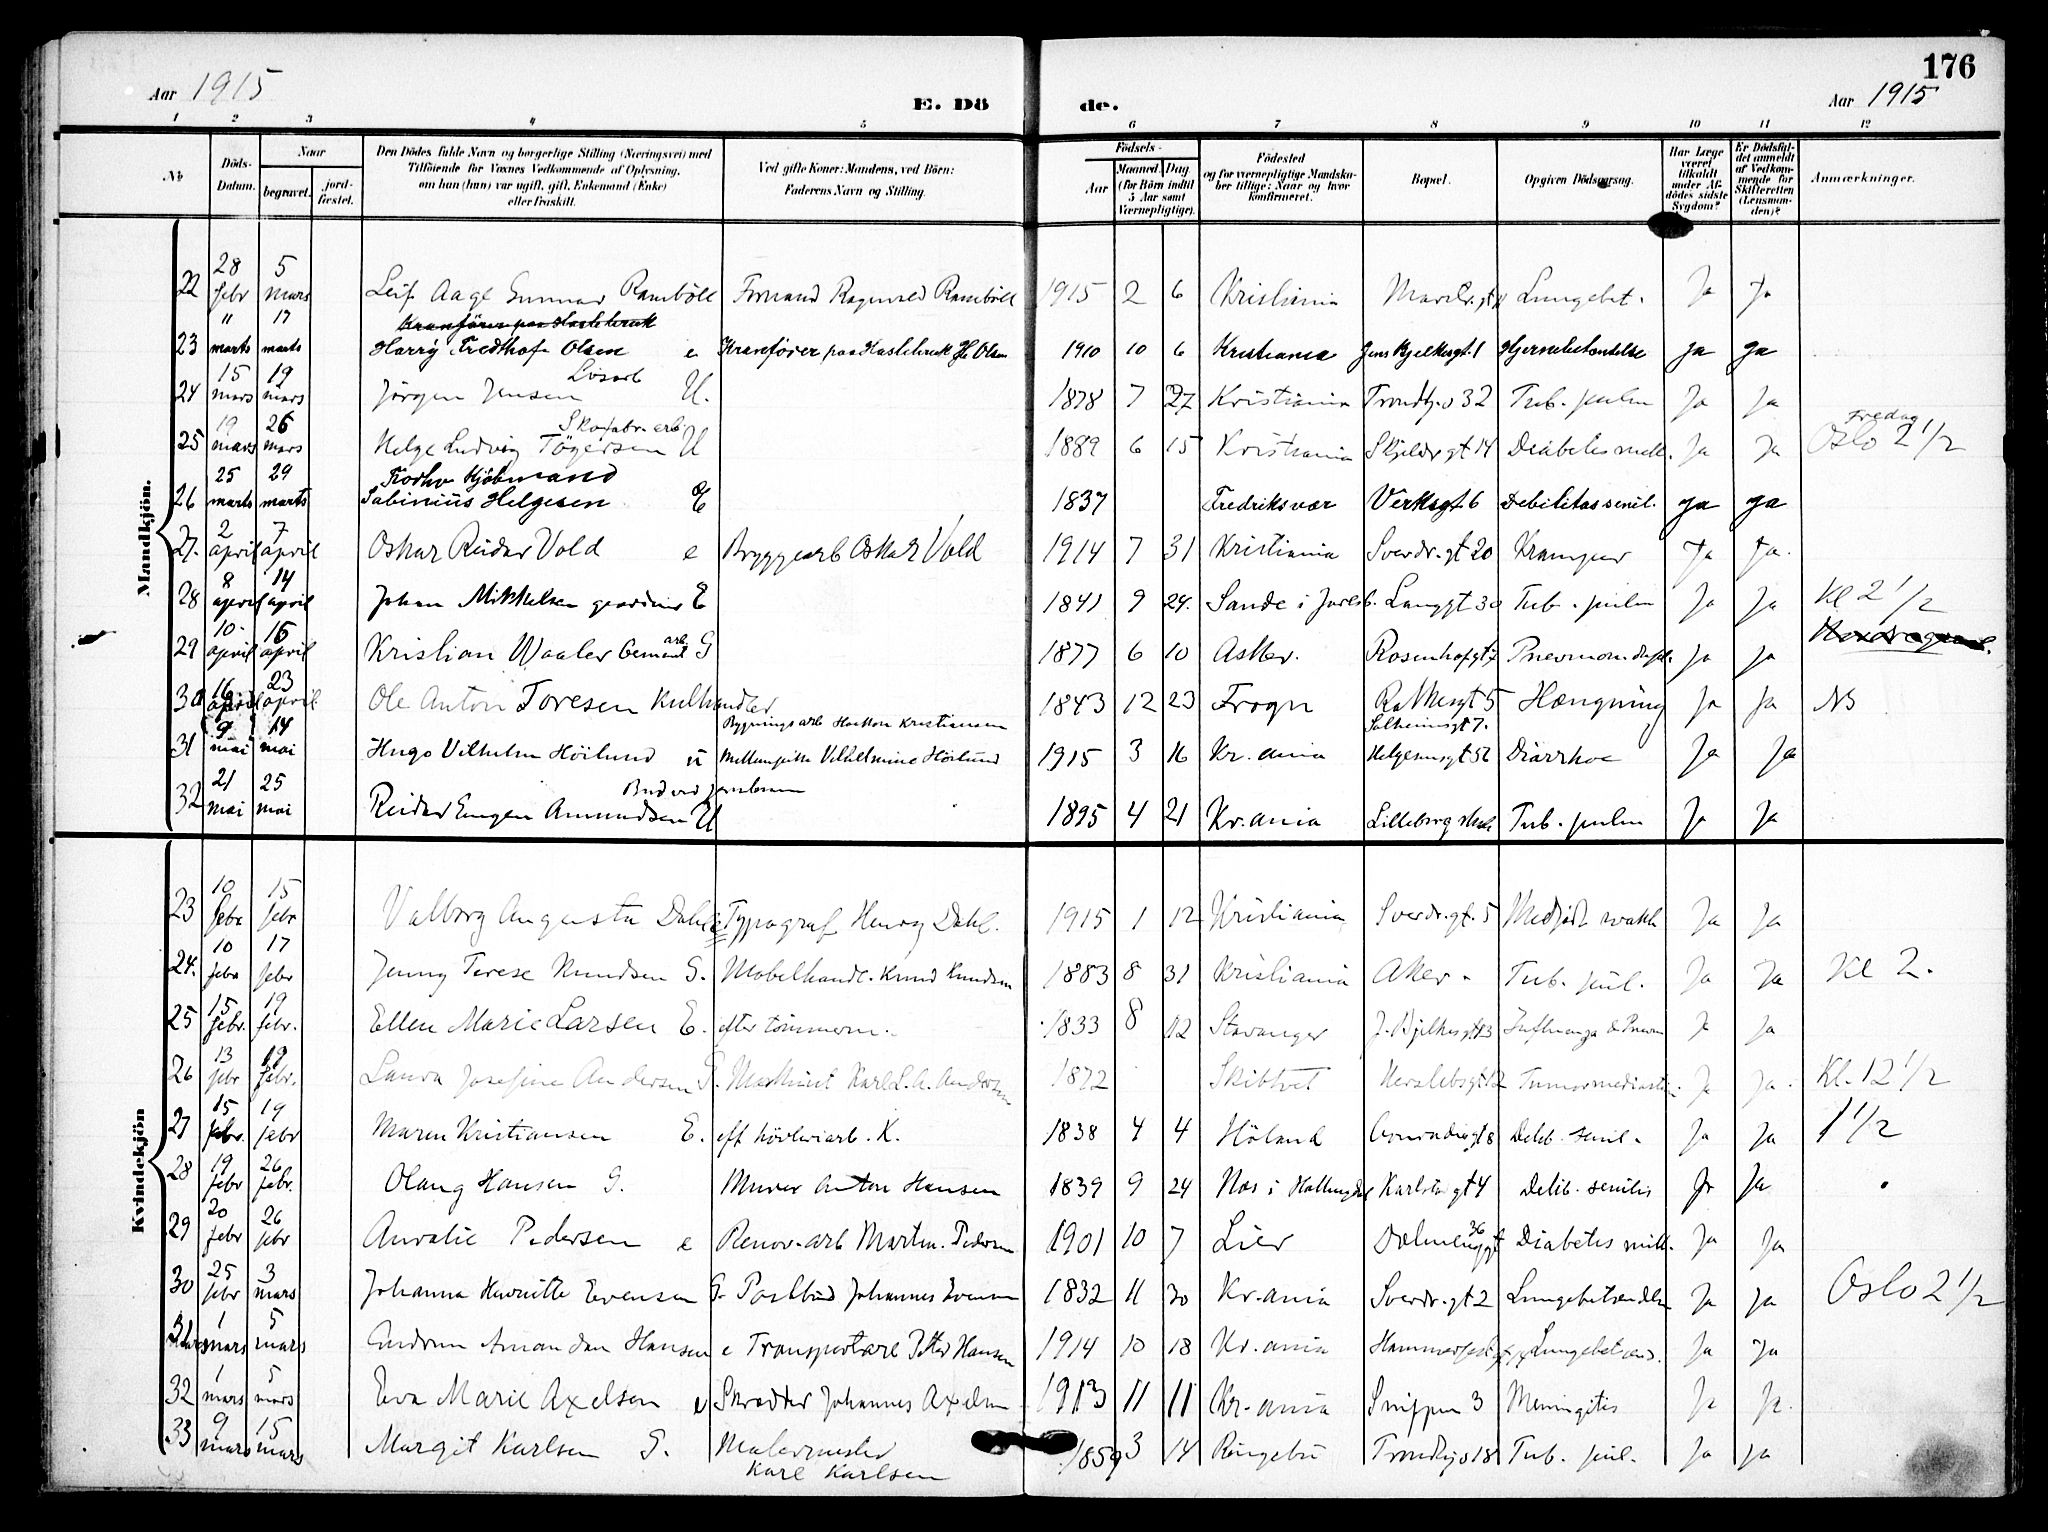 176
Aar 1915
E. Dö de.
Aar 1915
1 2 3 4 5 6 7 8 9 10 11 12
No
Döds-Datum.
Naar
begravet.
jord-fæstet.
Den Dödes fulde Navn og borgerlige Stilling (Næringsvei) med
Tilföiende for Voxnes Vedkommende af Oplysning,
om han (hun) var ugift, gift, Enkemand (Enke)
eller fraskilt.
Ved gifte Koner: Mandens, ved Börn:
Faderens Navn og Stilling.
Födsels-
Aar
Maaned. Dag.
(for Börn indtil
5 Aar samt
Værnepligtige).
Födested
og for værnepligtige Mandska-
ber tillige: Naar og hvor
konfirmeret.
Bopæl.
Opgiven Dödsaarsag.
Har Læge
været
tilkaldt
under Af-
dödes sidste
Sygdom?
Er Dödsfal-
det anmeldt
af Vedkom-
mende for
Skifteretten
(Lensman-
den)?
Anmærkninger.
Mandkjön.
22 28 febr 5 mars Leif Aage Gunnar Ramböll Ragnvald Ramböll 1915 2 6 Kristiania Lungebet. Ja Ja
23 " marts 17 marts Harry Fredthof Olsen e Kranförer paa Haslebruk Olsen 1910 10 6 Kristiania Jens Bjelkesgt. 1 Hjernebetændelse Ja Ja
24 15 mars 19 mars Jörgen Jensen Lösarb U. 1878 7 27 Kristiania Trondhj.v 32 Tub. pulm Ja Ja
25 19 mars 26 mars Helge Ludvig Tögersen Skofabr. arb U 1889 6 15 Kristiania Skjoldr gt 14 Diabetes mell. Ja Ja Fredag Oslo 2 1/2
26 25 marts 29 marts Kjöbmand Sabinius Helgesen E 1837 Fredriksvær Verksgt. 6 Debilitas senil. Ja Ja
27. 2 april 7 april Oskar Reidar Vold e Bryggearb Oskar Vold 1914 7 31 Kristiania Sverdr. gt 20 Kramper Ja Ja.
28 8 april 14 april Johan Mikkelsen E 1841 9 24. Sande i Jarlsb. Langgt 30 Tub. pulm Ja Ja Kl 2 1/2
29 10 april 16 april Kristian Waaler Cement arb. G 1877 6 10 Asker. Rosenhofgt Ja Ja
30 16 april 23 april Ole Anton Toresen Kulhandler 1843 12 23 Frogn Rathkesgt 5 Hængning Ja Ja NB
31 9 mai 14 mai Hugo Vilhelm Höilund u Bygningsarb Haakon Kristiansen Vilhelmine Höilund 1915 3 16 Kr.ania Solheimsgt 7. Helgesensgt 56 Diarrhoe Ja Ja
32 21 mai 25 mai Reidar Eugen Amundsen Bud ved U 1895 4 21 Kr.ania Lilleborg Tub. pulm Ja Ja
Kvindekjön
23 10 febr 15 febr Valborg Augusta Dahl e Typograf Henry Dahl. 1915 1 12 Kristiania Sverdr. gt. 5 Medfödt svakh Ja Ja
24. 10 febr 17 febr Jenny Terese Knudsen G. Möbelhandl. Knud Knudsen 1883 8 31 Kristiania Aker - Tub. pul. Ja Ja Kl 2.
25 15 febr. 19 febr. Ellen Marie Larsen E. efter tömmerm. 1833 8 12 Stavanger J. Bjelkesgt 13 Influenza & Pneum Ja Ja
26 13 febr 19 febr. Laura Josefine Andersen G. Maskinist Karl L. A. Andersen 1872 Skibtvet Herslebsgt 12 Ja Ja Kl. 12 1/2
27 15 febr. 19 febr Maren Kristiansen E. eft hövleriarb. K. 1838 4 4 Höland 8 Debil. senil. Ja Ja 1 1/2
28 19 febr 26 febr. Olaug Hansen G. Murer Anton Hansen 1839 9 24 Nas i Hallingdal Karlsta gt 4 Debil. senilis Ja Ja
29 20 febr 26 febr Auralie Pedersen e Renov. arb Martin Pedersen 1901 10 7 Lier Dælenenggt 36 Diabetes mell. Ja Ja
30 25 febr 3 mars Johanna Henriette Evensen G. Postbud Johannes Evensen 1832 11 30 Kr.ania Sverdr. gt 2 Lungebetændelse Ja Ja Oslo 2 1/2
31 1 mars 5 mars Gudrun Amandan Hansen e Transportarb Petter Hansen 1914 10 18 Kr.ania Hammerfest gt Lungebetænd. Ja Ja
32 1 mars 5 mars Eva Marie Axelsen e Skrædder Johannes Axelsen 1913 11 11 Kr.ania Snippen 3 Meningitis Ja Ja.
33 9 mars 15 mars Margit Karlsen G. Malermester Karl Karlsen 1859 3 14 Ringebu Trondhj. v 18 Tub. pul. Ja Ja